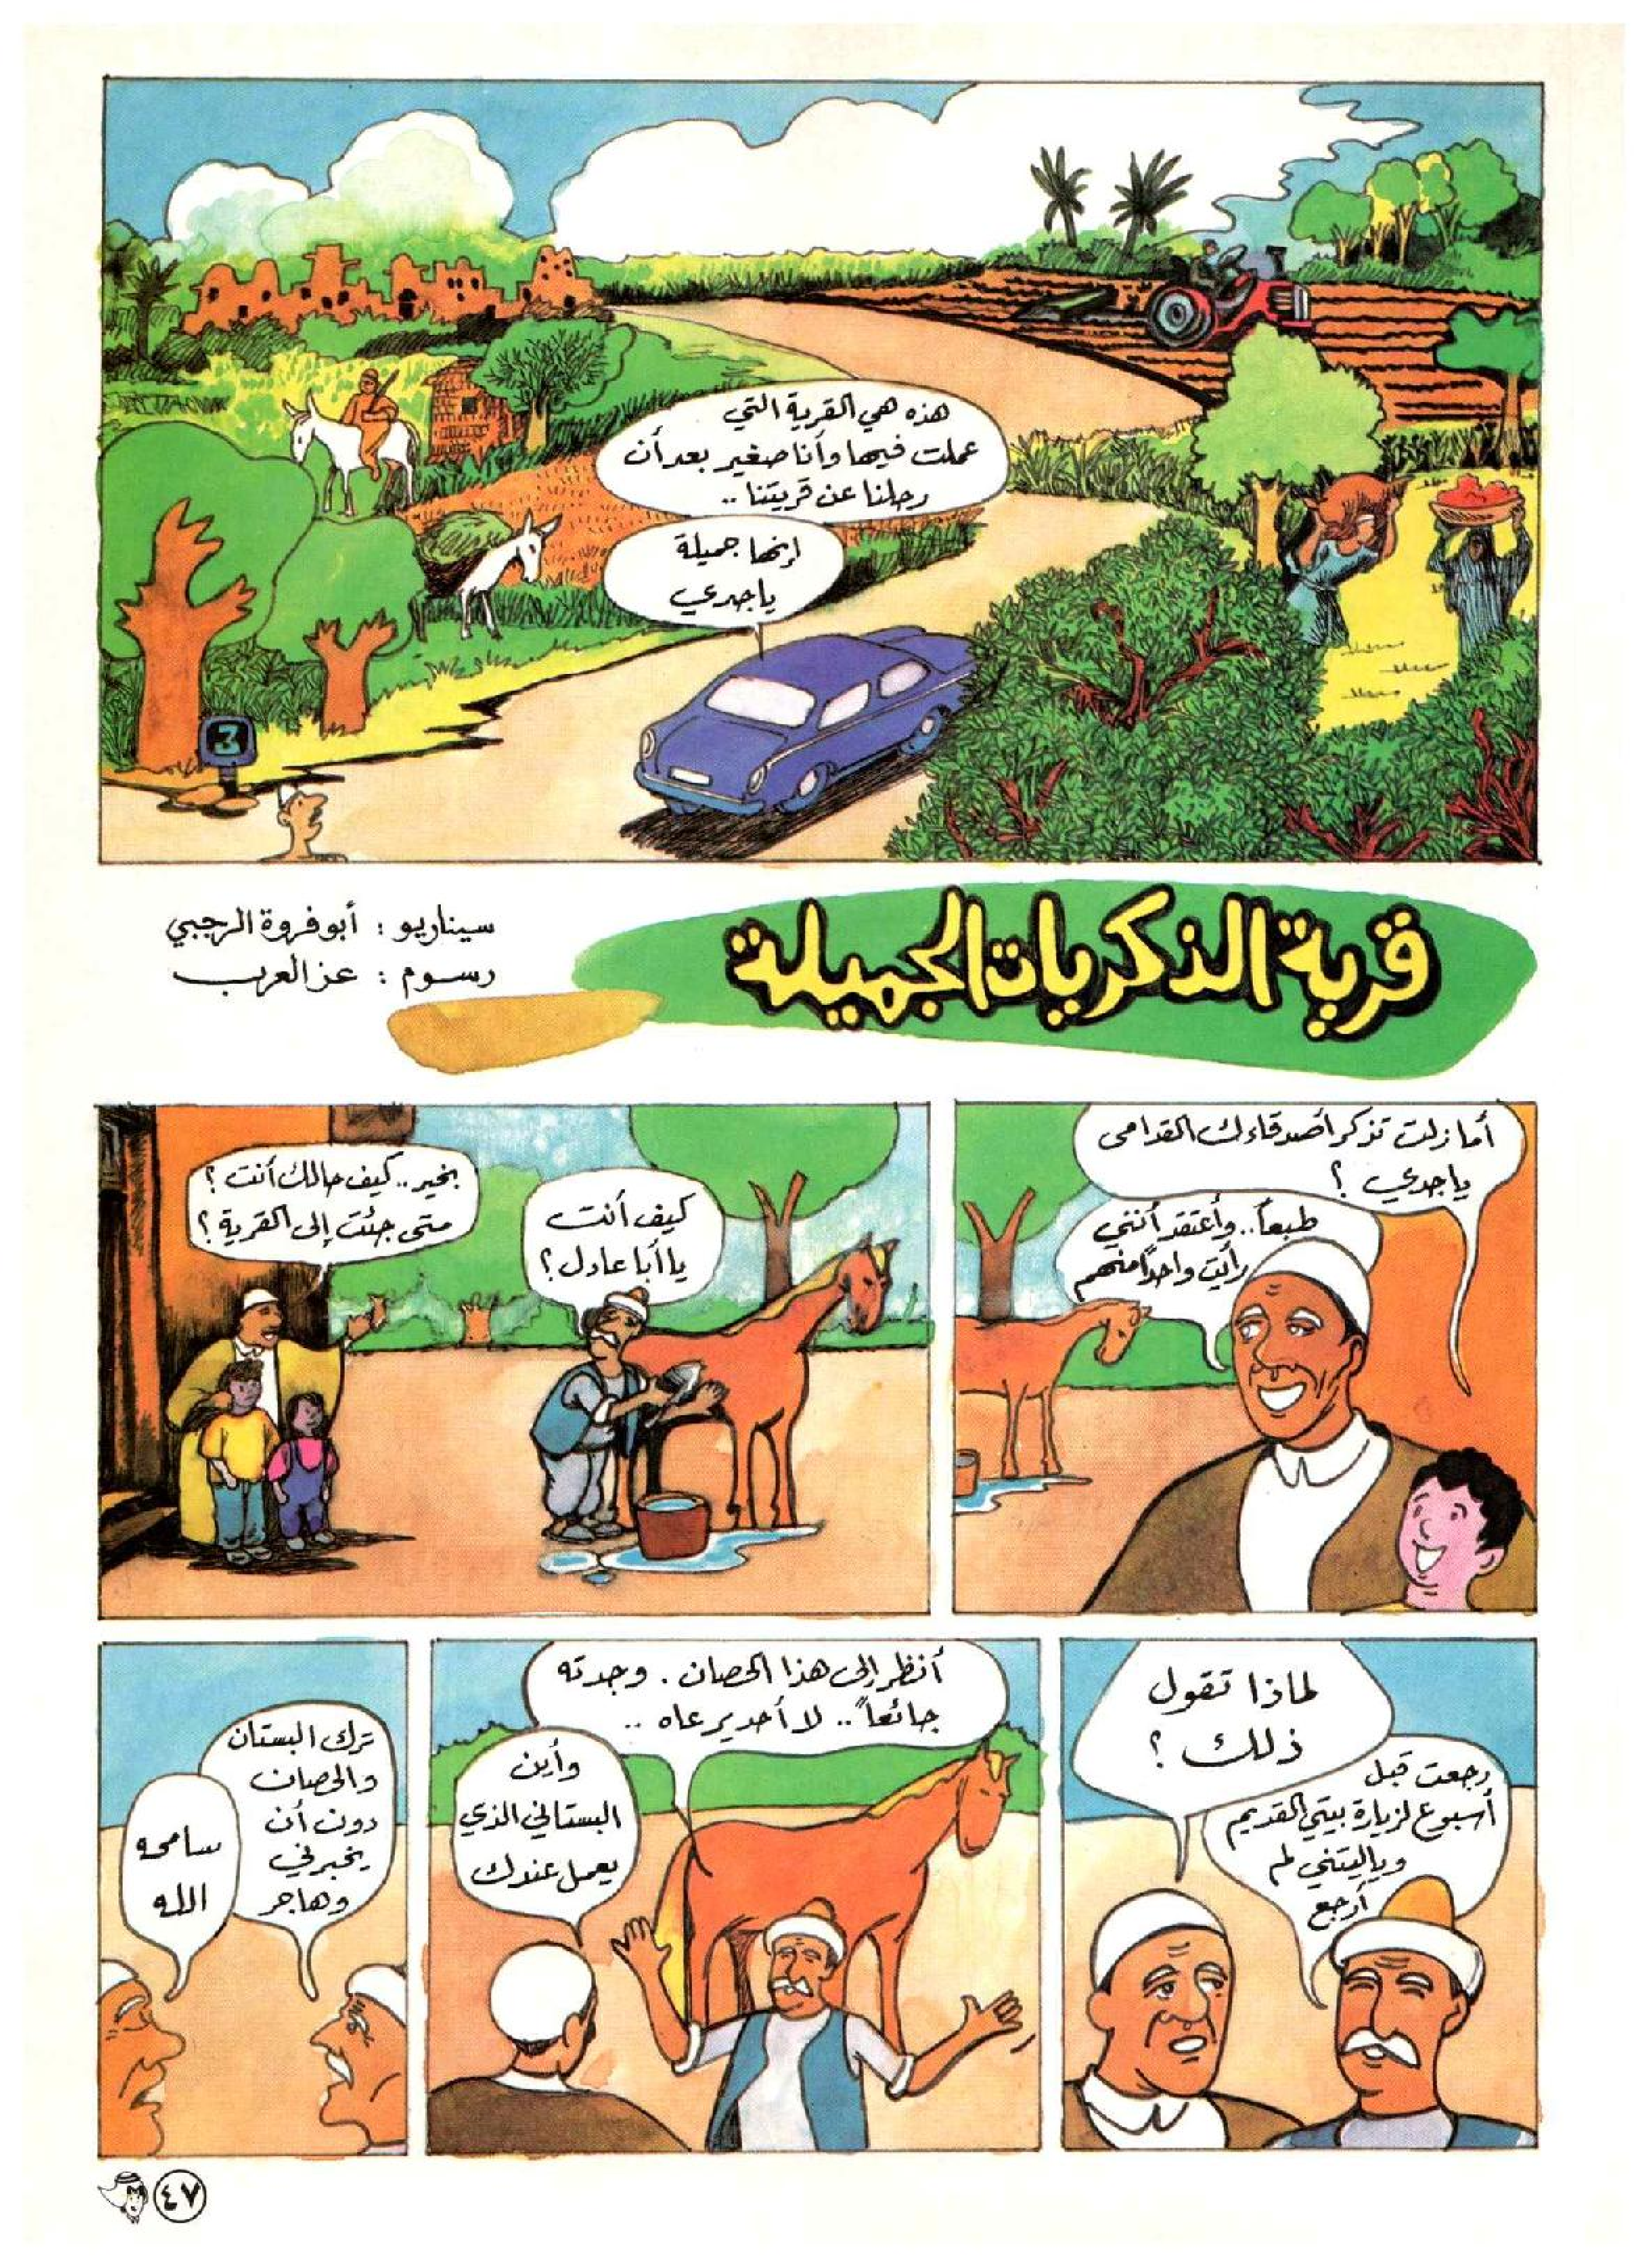 هذه هي القرية التي
عملت فيها وأنا صغير بعد أن
رحلنا عن قريتنا ..
إنها جميلة
يا جدي
3
قرية الذكريات الجميلة
سيناريو : أبو فروة الرجبي
رسوم : عز العرب
أما زلت تذكر أصدقاءك القدامى
يا جدي ؟
طبعاً.. وأعتقد أنني
رأيت واحداً منهم
كيف أنت
يا أبا عادل ؟
بخير .. كيف حالك أنت ؟
متى جئت إلى القرية ؟
لماذا تقول
ذلك ؟
رجعت قبل
أسبوع لزيارة بيتي القديم
وياليتني لم
أرجع
أنظر إلى هذا الحصان . وجدته
جائعاً .. لا أحد يرعاه ..
وأين
البستاني الذي
يعمل عندك
ترك البستان
والحصان
دون أن
يخبرني
وهاجر
سامحه
الله
٤٧